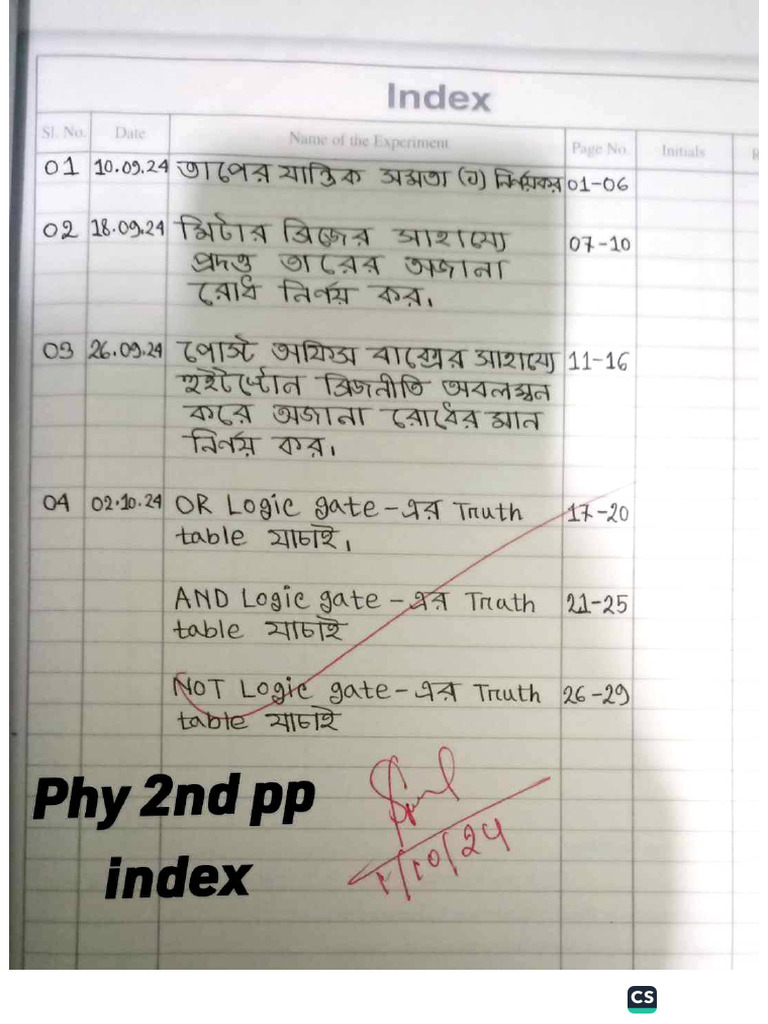 Index
Sl. No. Date Name of the Experiment Page No. Initials R
01 10.09.24 তাপের যান্ত্রিক সমতা (J) নির্ণয়কর 01-06
02 18.09.24 মিটার ব্রিজের সাহায্যে 07-10
প্রদত্ত তারের অজানা
রোধ নির্ণয় কর।
03 26.09.24 পোস্ট অফিস বাক্সের সাহায্যে 11-16
হুইটস্টোন ব্রিজনীতি অবলম্বন
করে অজানা রোধের মান
নির্ণয় কর।
04 02.10.24 OR Logic gate-এর Truth 17-20
table যাচাই।
AND Logic gate-এর Truth 21-25
table যাচাই
NOT Logic gate-এর Truth 26-29
table যাচাই
Phy 2nd pp
index
/10/24
CS